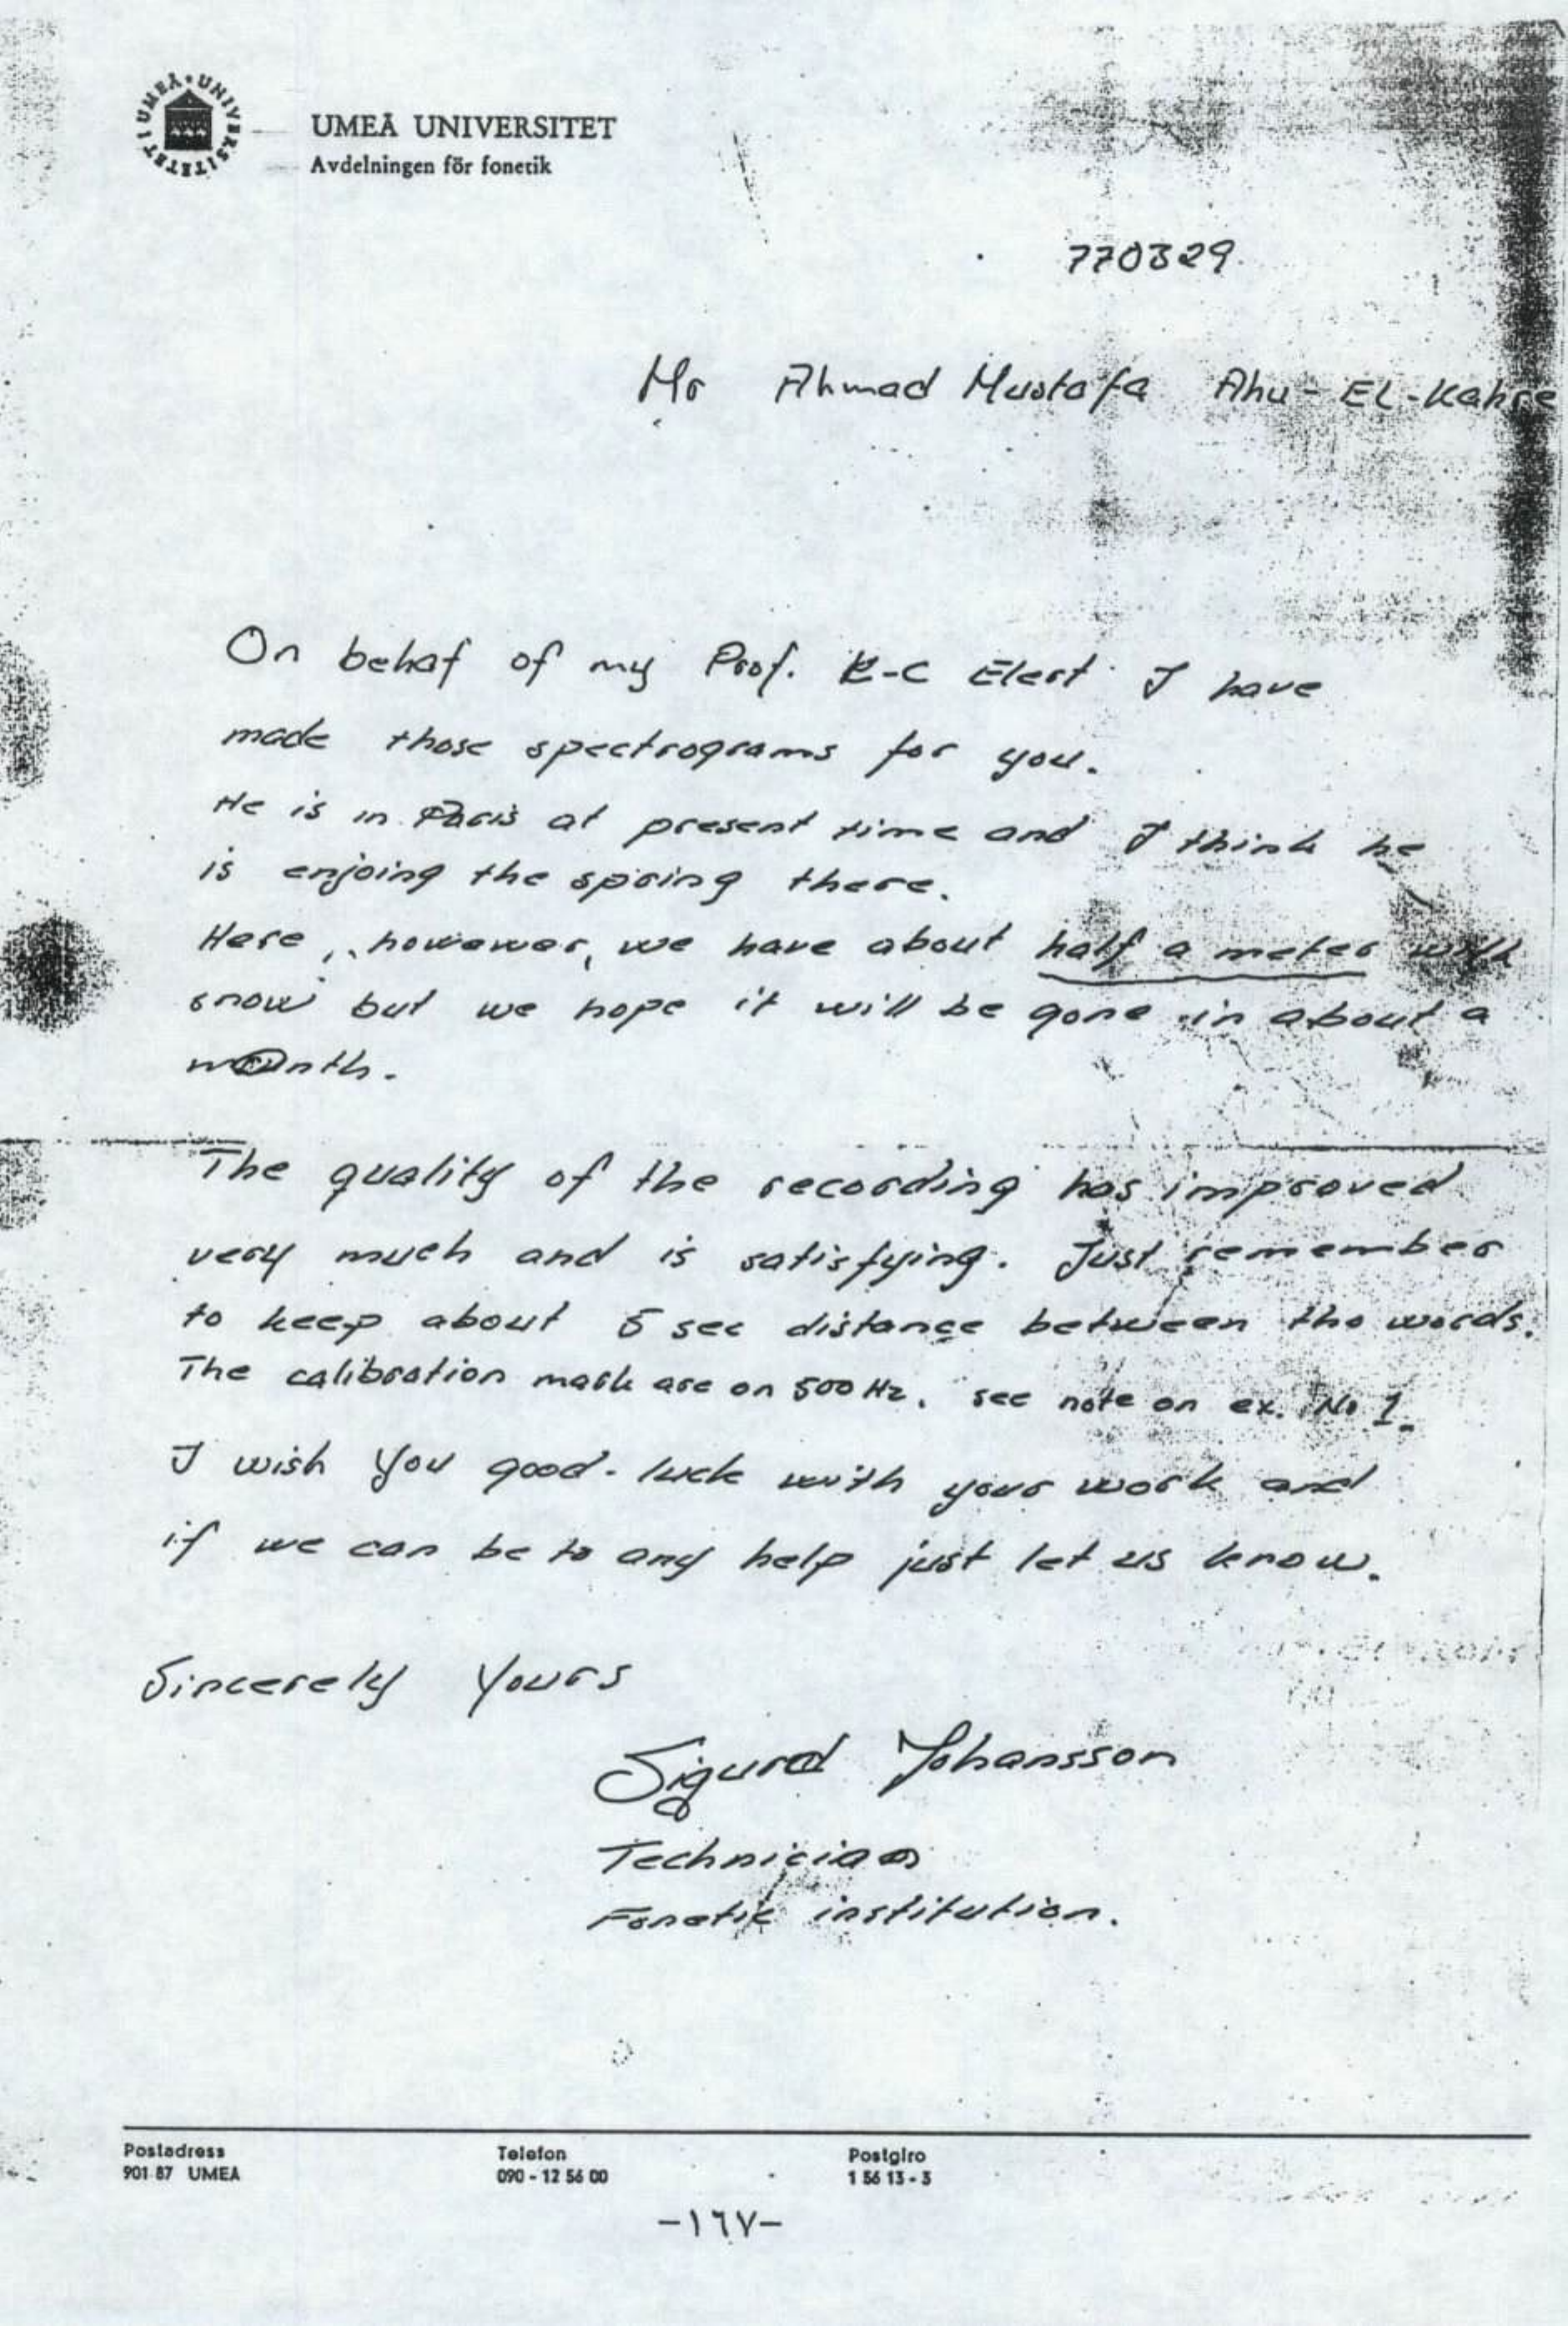 UNIVERSITETET I UMEÅ
UMEÅ UNIVERSITET
Avdelningen för fonetik
770329
Mr Ahmad Mustafa Ahu-EL-Kahre
On behaf of my Prof. C-C Elert I have
made those spectrograms for you.
He is in Paris at present time and I think he
is enjoing the spring there.
Here, however, we have about half a meter with
snow but we hope it will be gone in about a
month.
The quality of the recording has improved
very much and is satisfying. Just remember
to keep about 5 sec distance between the words.
The calibration mark are on 500 Hz. see note on ex. No 1.
I wish You good luck with your work and
if we can be to any help just let us know.
Sincerely Yours
Sigurd Johansson
Technician
Fonetik institution.
Postadress Telefon Postgiro
901 87 UMEÅ 090-12 56 00 1 56 13-3
-١٦٧-